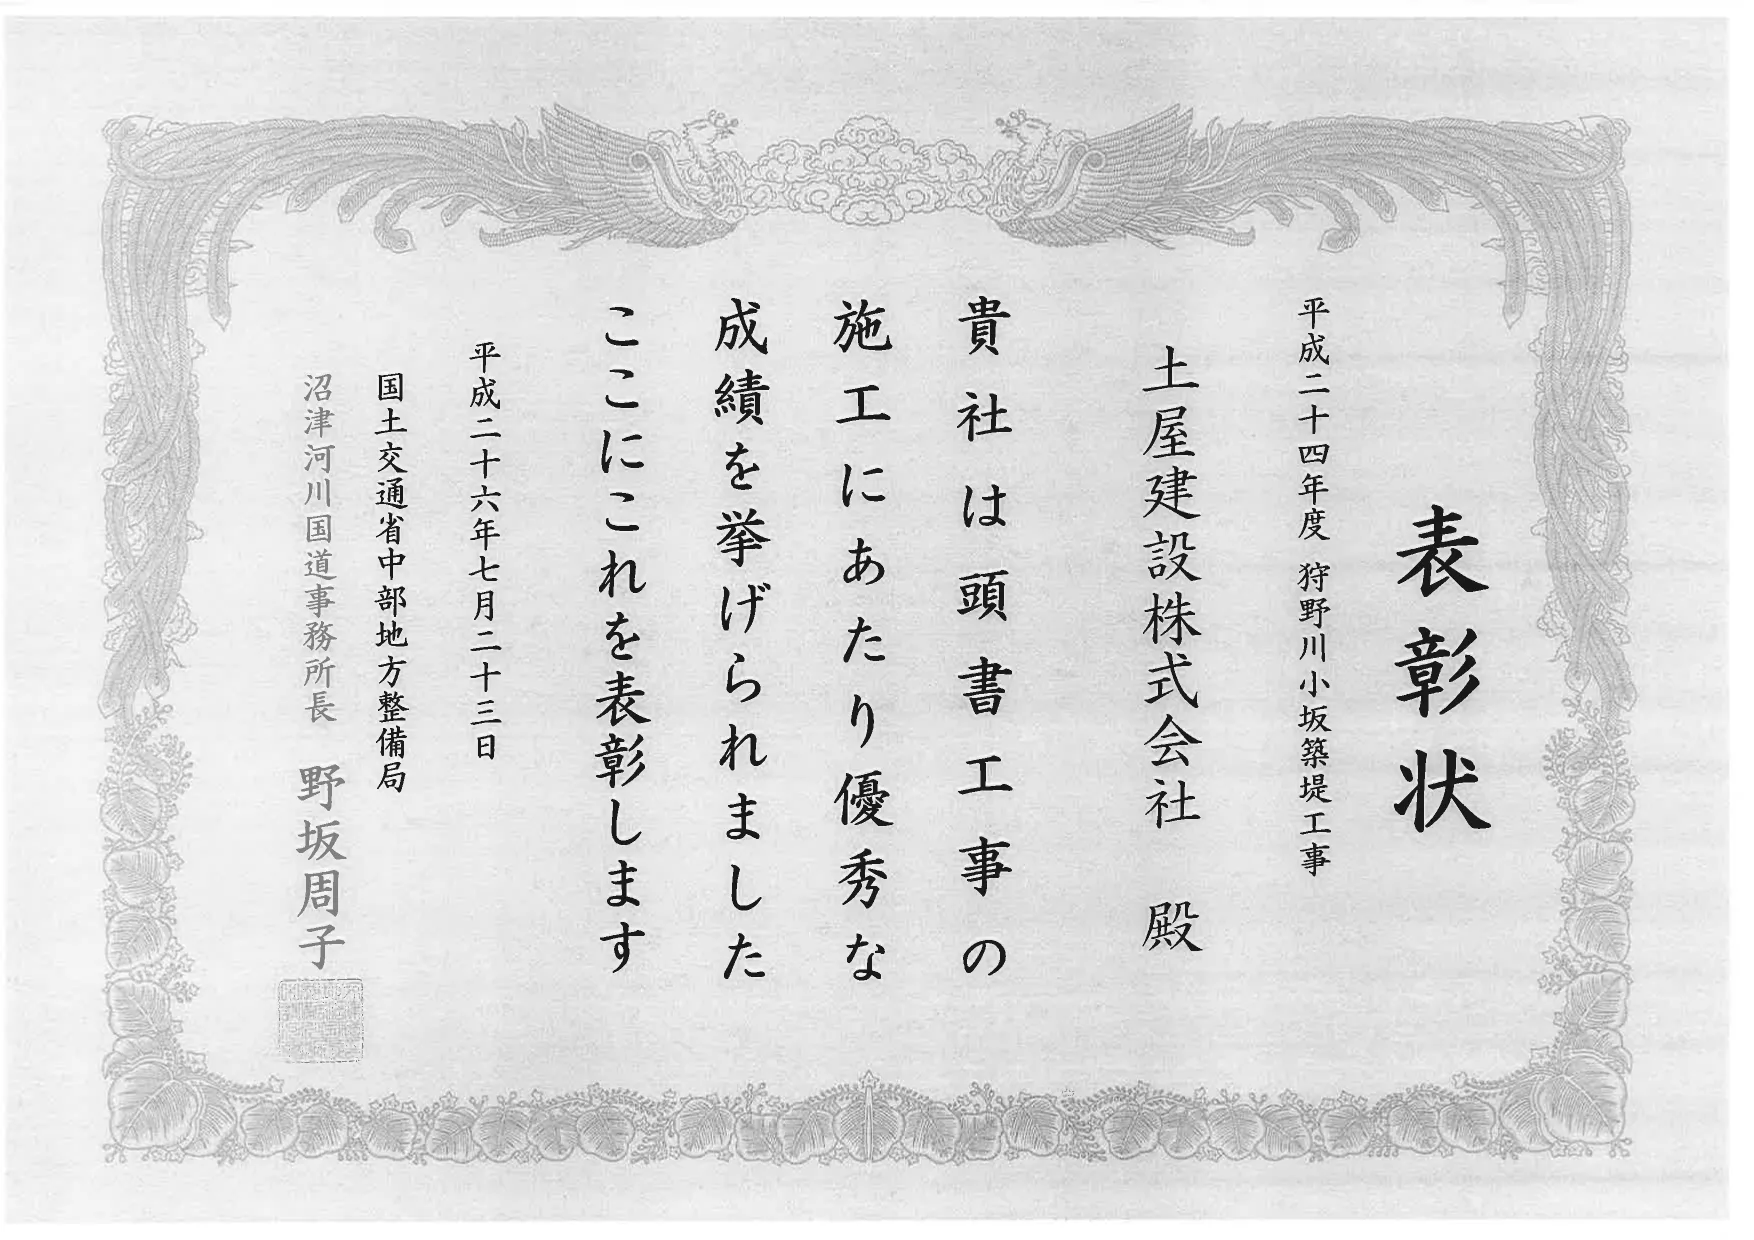 表彰状
平成二十四年度 狩野川小坂築堤工事
土屋建設株式会社 殿
貴社は頭書工事の
施工にあたり優秀な
成績を挙げられました
ここにこれを表彰します
平成二十六年七月二十三日
国土交通省中部地方整備局
沼津河川国道事務所長 野坂周子